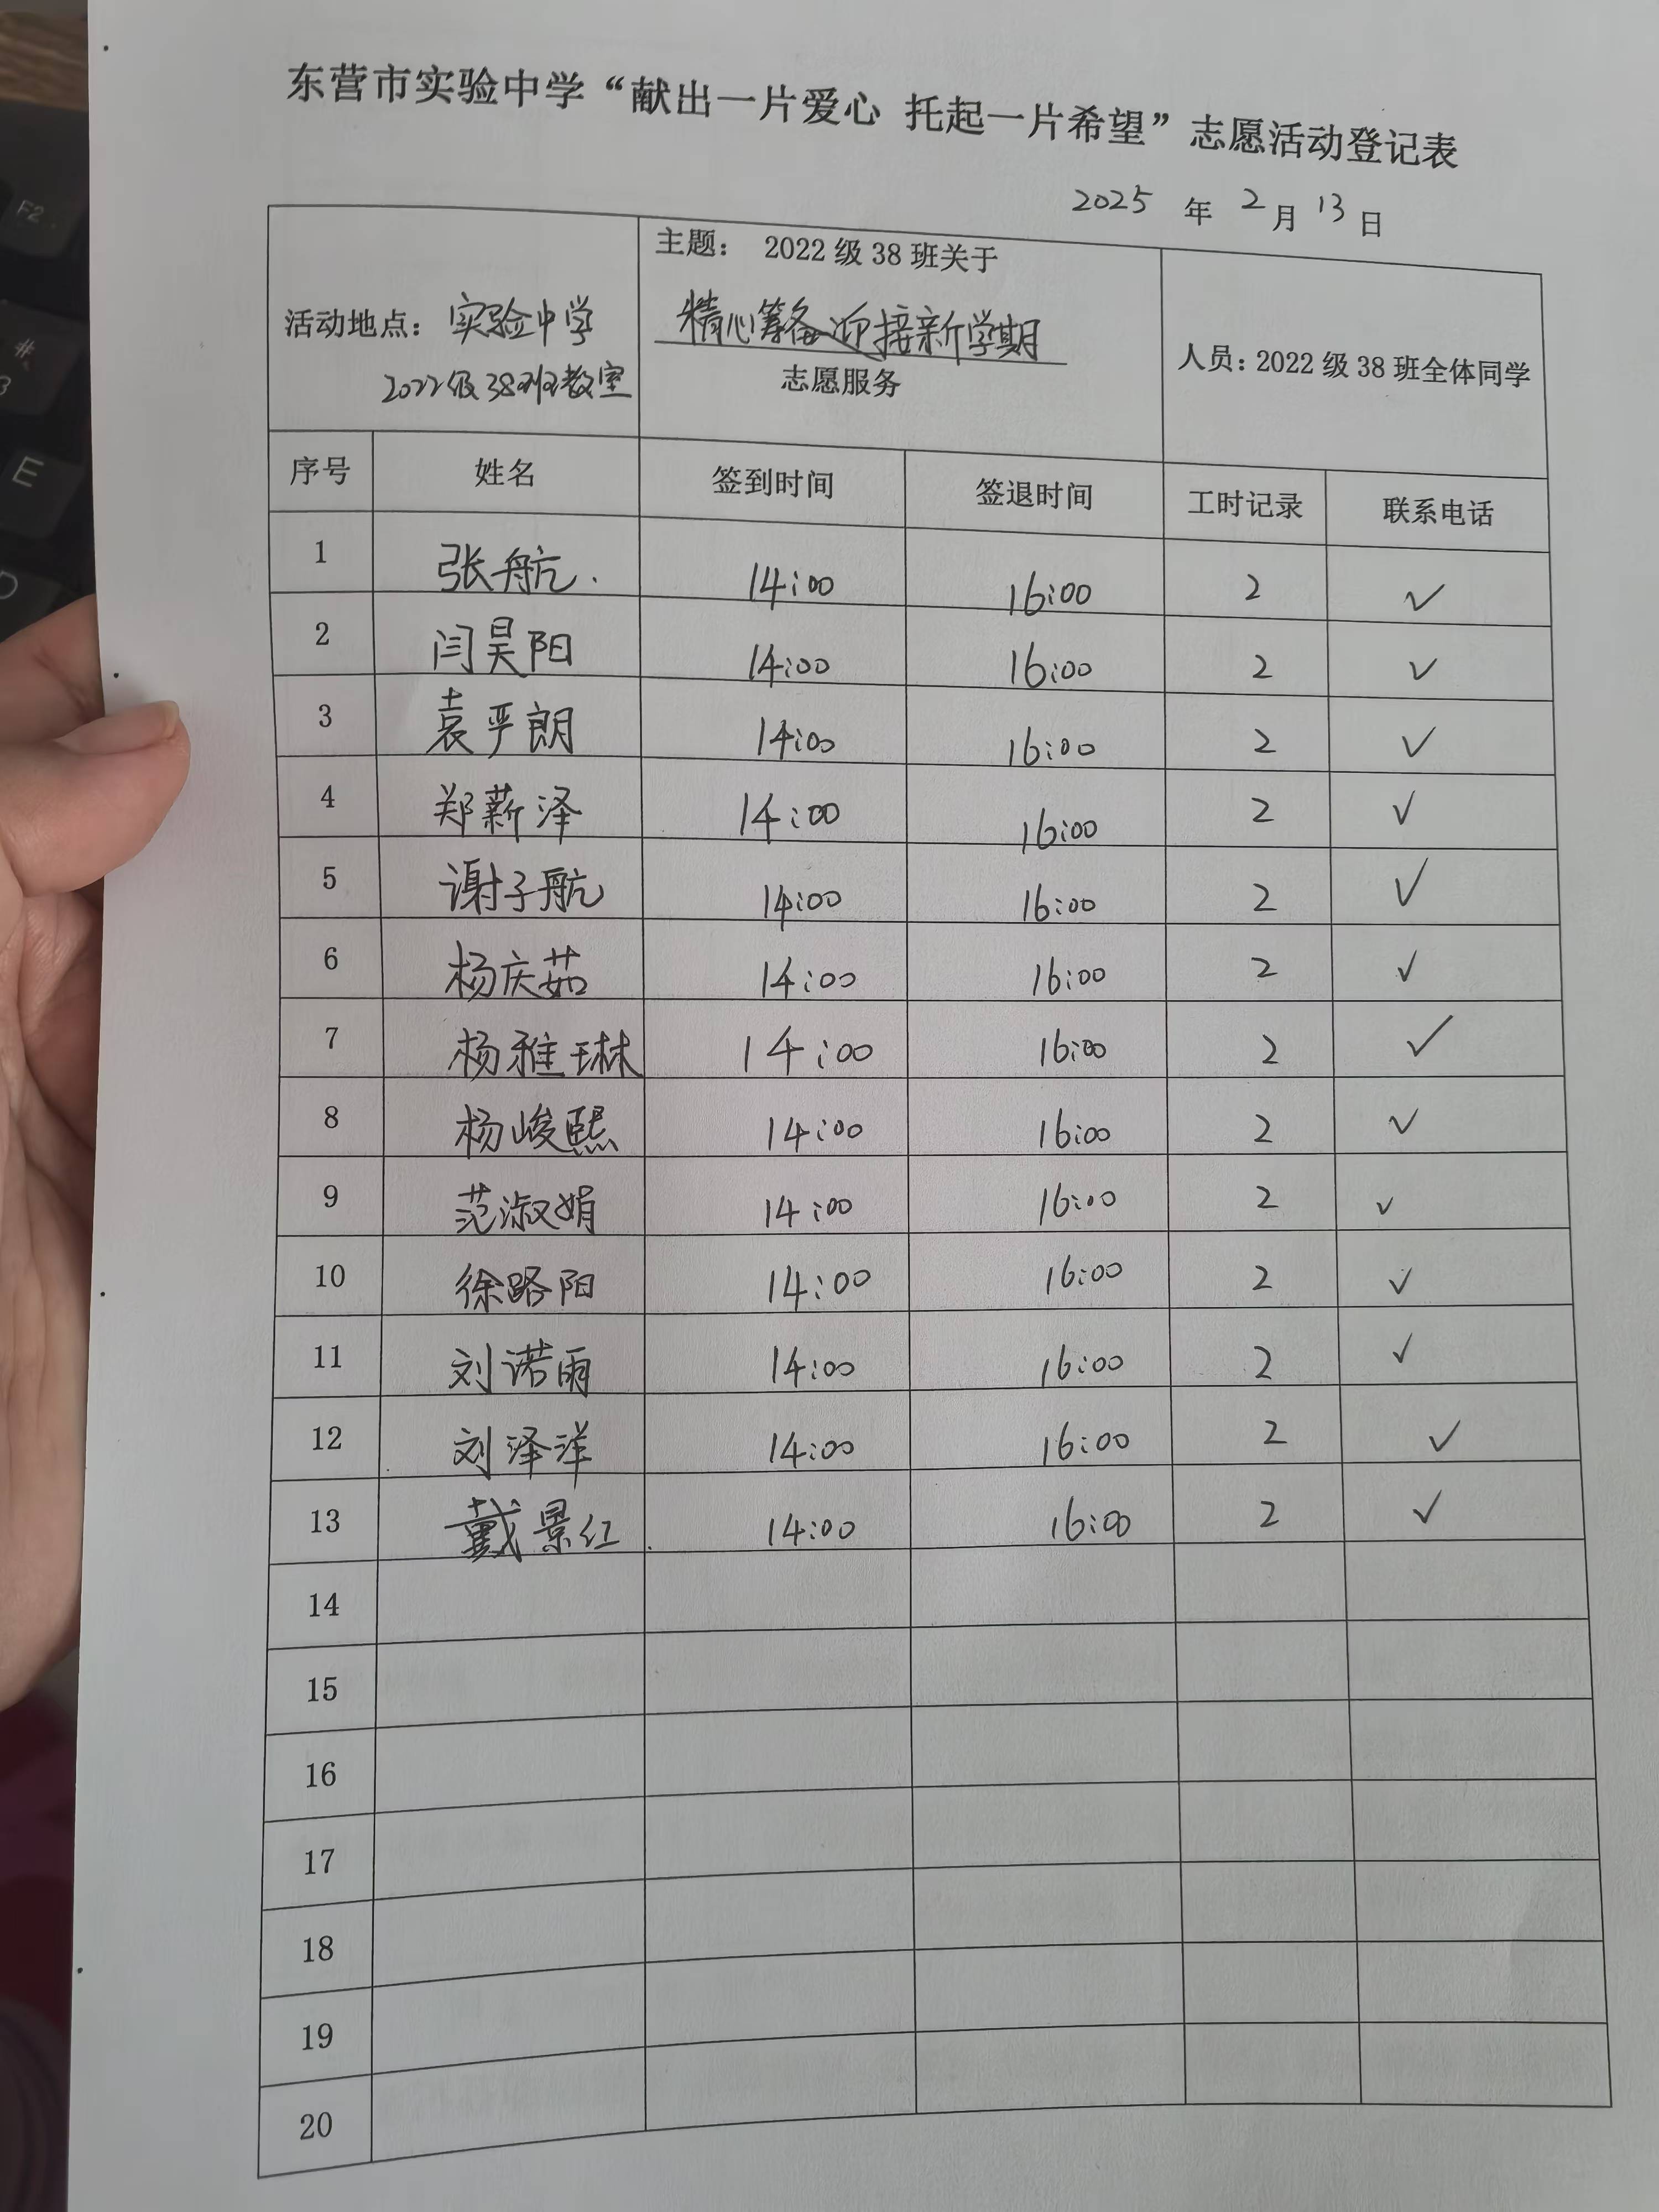 东营市实验中学“献出一片爱心 托起一片希望”志愿活动登记表
2025 年 2 月 13 日
活动地点：实验中学
2022级38班教室
主题： 2022 级 38 班关于
精心筹备 迎接新学期
志愿服务
人员：2022 级 38 班全体同学
序号 姓名 签到时间 签退时间 工时记录 联系电话
1 张航. 14:00 16:00 2 ✓
2 闫昊阳 14:00 16:00 2 ✓
3 袁乎朗 14:00 16:00 2 ✓
4 郑薪泽 14:00 16:00 2 ✓
5 谢子航 14:00 16:00 2 ✓
6 杨庆茹 14:00 16:00 2 ✓
7 杨雅琳 14:00 16:00 2 ✓
8 杨峻熙 14:00 16:00 2 ✓
9 范淑娟 14:00 16:00 2 ✓
10 徐路阳 14:00 16:00 2 ✓
11 刘诺雨 14:00 16:00 2 ✓
12 刘泽洋 14:00 16:00 2 ✓
13 戴景红. 14:00 16:00 2 ✓
14
15
16
17
18
19
20
F2
#
3
E
D